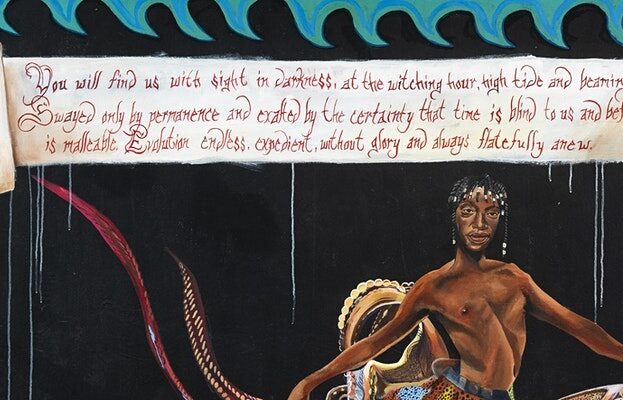 You will find us with sight in darkness, at the witching hour, high tide and
Swayed only by permanence and exalted by the certainty that time is blind to us and
is malleable. Evolution endless, expedient, without glory and always fatefully anew.